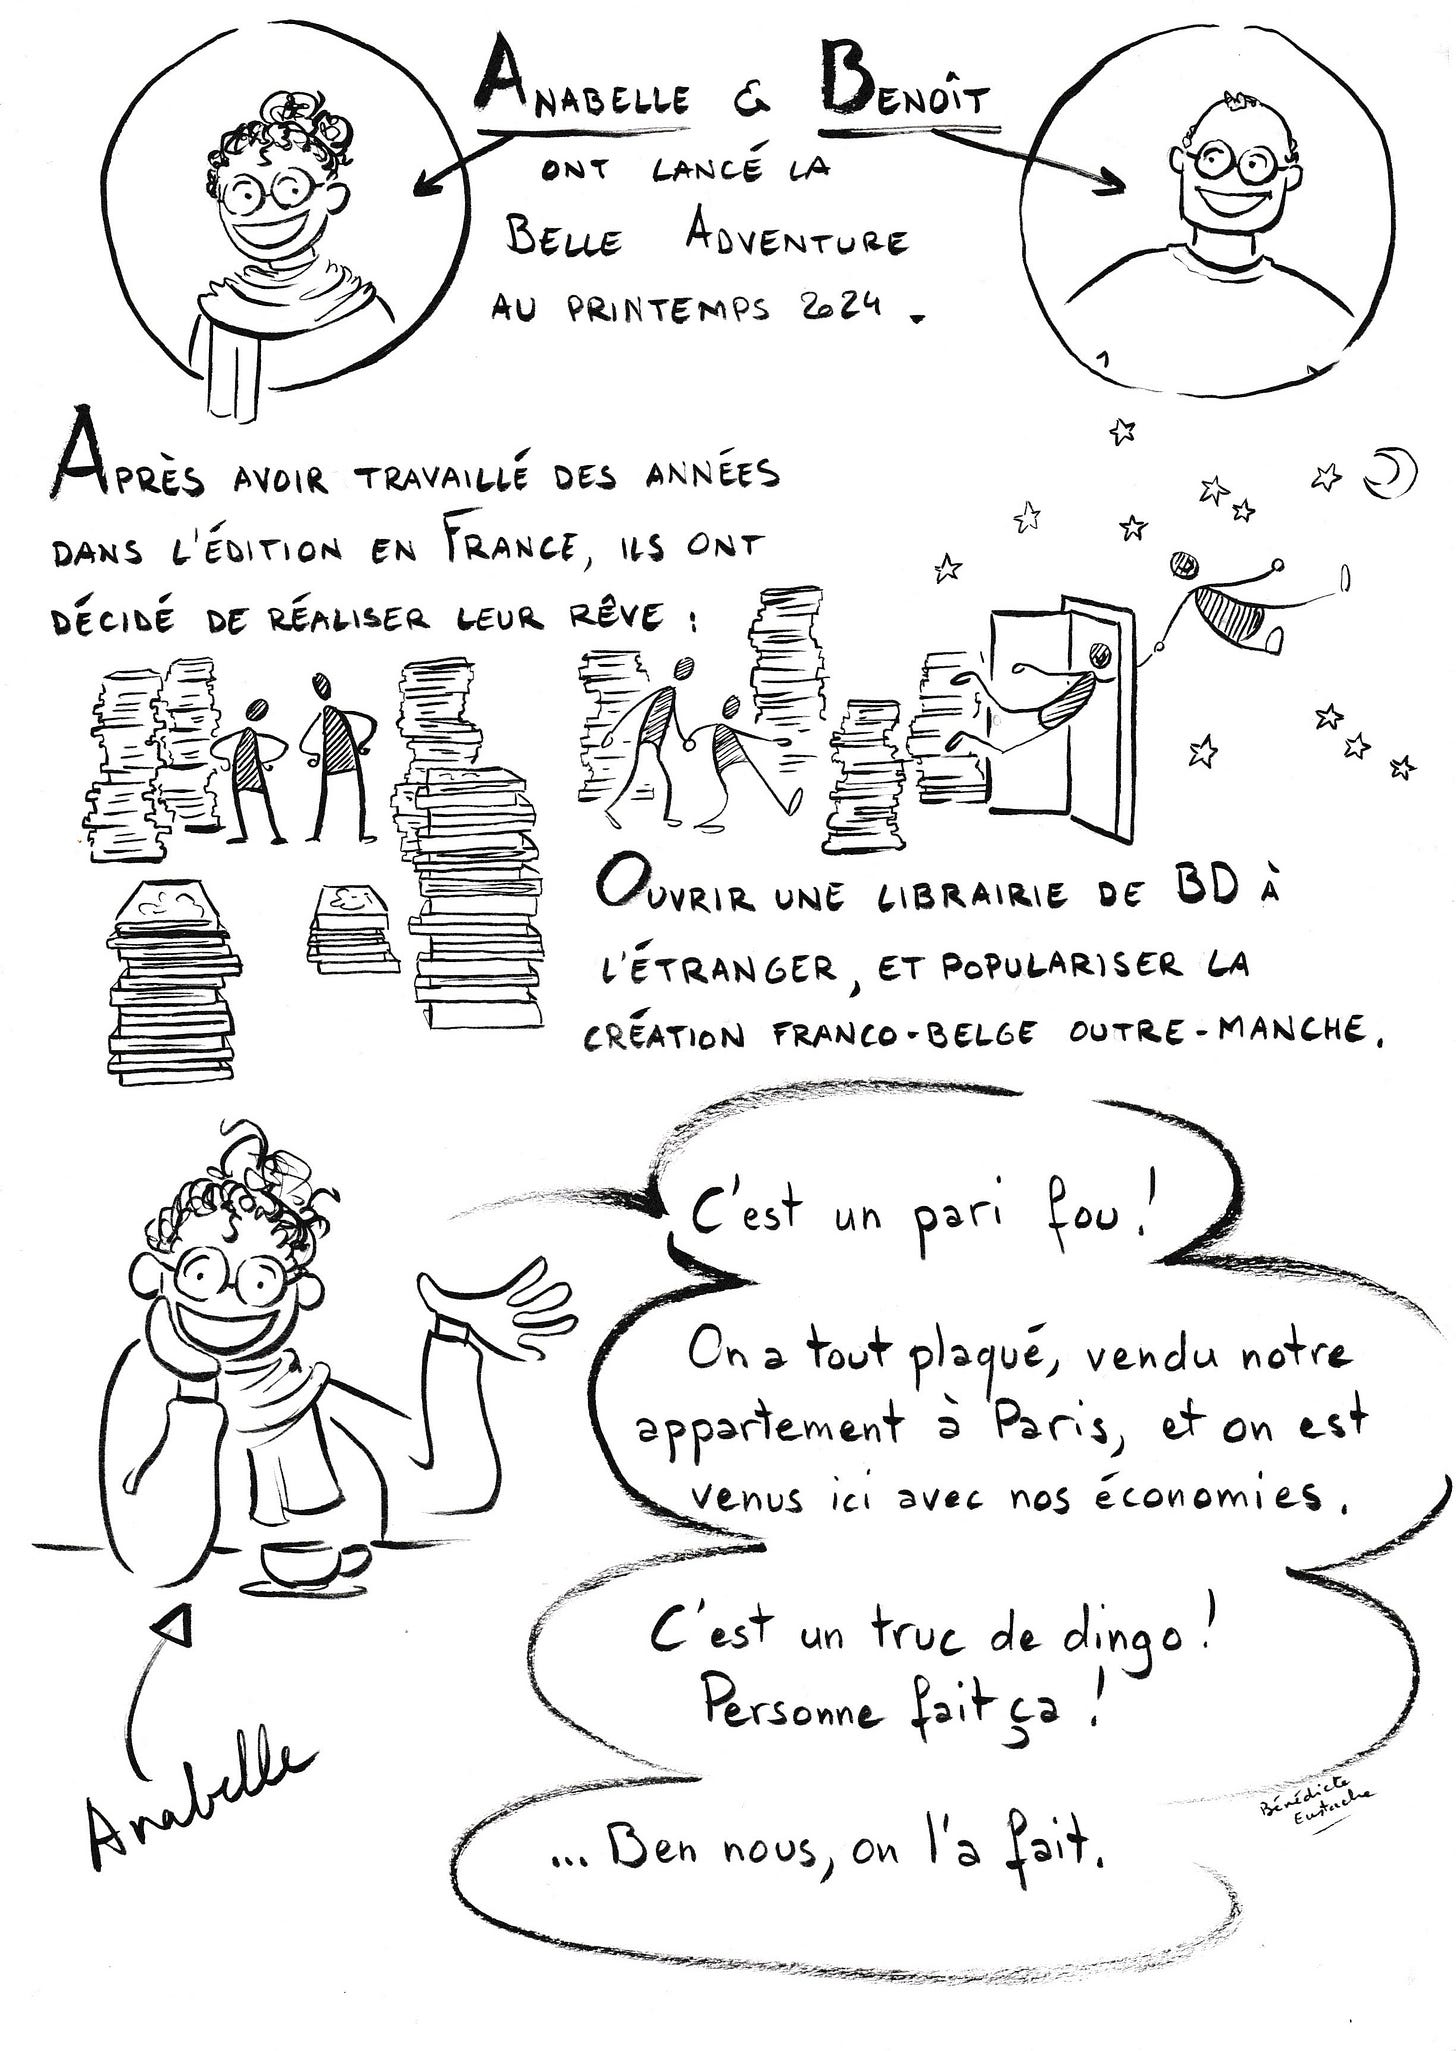 ANABELLE & BENOÎT
ONT LANCÉ LA
BELLE ADVENTURE
AU PRINTEMPS 2024.
APRÈS AVOIR TRAVAILLÉ DES ANNÉES
DANS L'ÉDITION EN FRANCE, ILS ONT
DÉCIDÉ DE RÉALISER LEUR RÊVE :
OUVRIR UNE LIBRAIRIE DE BD À
L'ÉTRANGER, ET POPULARISER LA
CRÉATION FRANCO-BELGE OUTRE-MANCHE.
C'est un pari fou !
On a tout plaqué, vendu notre
appartement à Paris, et on est
venus ici avec nos économies.
C'est un truc de dingo !
Personne fait ça !
... Ben nous, on l'a fait.
Anabelle
Bénédicte
Eustache